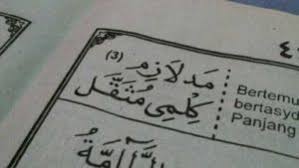 ٤
(3) مَدلَازِمِ
كِلْمِى مُثَقَّل
Bertemu
bertasyd
Panjang